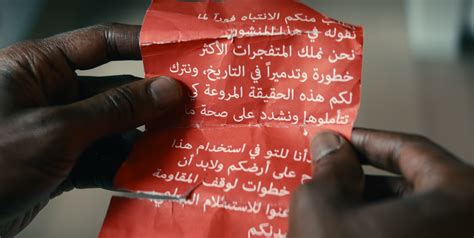 منكم الانتباه فوراً لما
نقوله في هذا المنشور
نحن نملك المتفجرات الأكثر
خطورة وتدميراً في التاريخ، ونترك
لكم هذه الحقيقة المروعة كي
تتأملوها ونشدد على صحة ما
بدأنا للتو في استخدام هذا
على أرضكم ولابد أن
خطوات لوقف المقاومة
للاستسلام السلمي